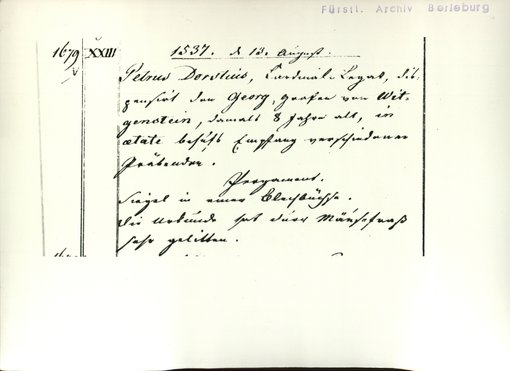 Fürstl. Archiv Berleburg
1679 XXIII 1537. d. 13. August.
V
Petrus Dorstius, Cardinal-Legat, dis-
pensirt den Georg, Grafen von Wit-
genstein, damals 8 Jahre alt, in
aetate behufs Empfang verschiedener
Präbenden.
Pergament.
Siegel in einer Blechbüchse.
Die Urkunde hat durch Mäusefraß
sehr gelitten.